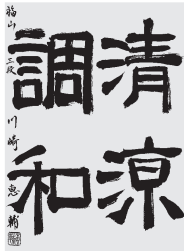 清涼
調和
福山 三段 川崎恵輔